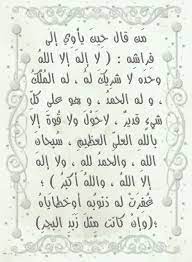 من قال حين يأوي إلى
فراشه : ( لا إله إلا الله
وحده لا شريك له ، له الملك
، و له الحمد ، و هو على كل
شيء قدير ، لا حول ولا قوة إلا
بالله العلي العظيم ، سبحان
الله ، والحمد لله ، ولا إله
إلا الله ، والله أكبر ) ؛
غفرت له ذنوبه أو خطاياه
؛(وإن كانت مثل زبد البحر)